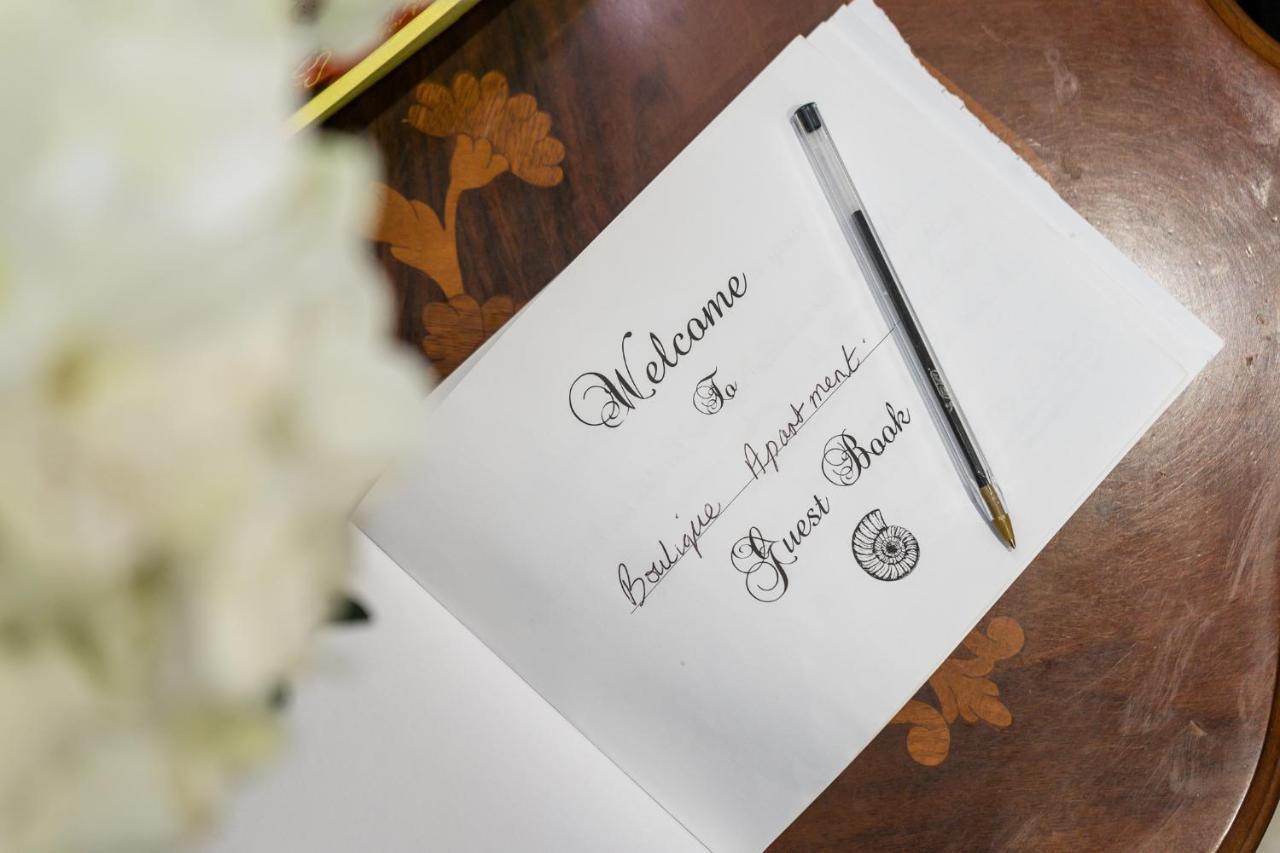 Welcome
To
Boutique Apartment.
Guest Book